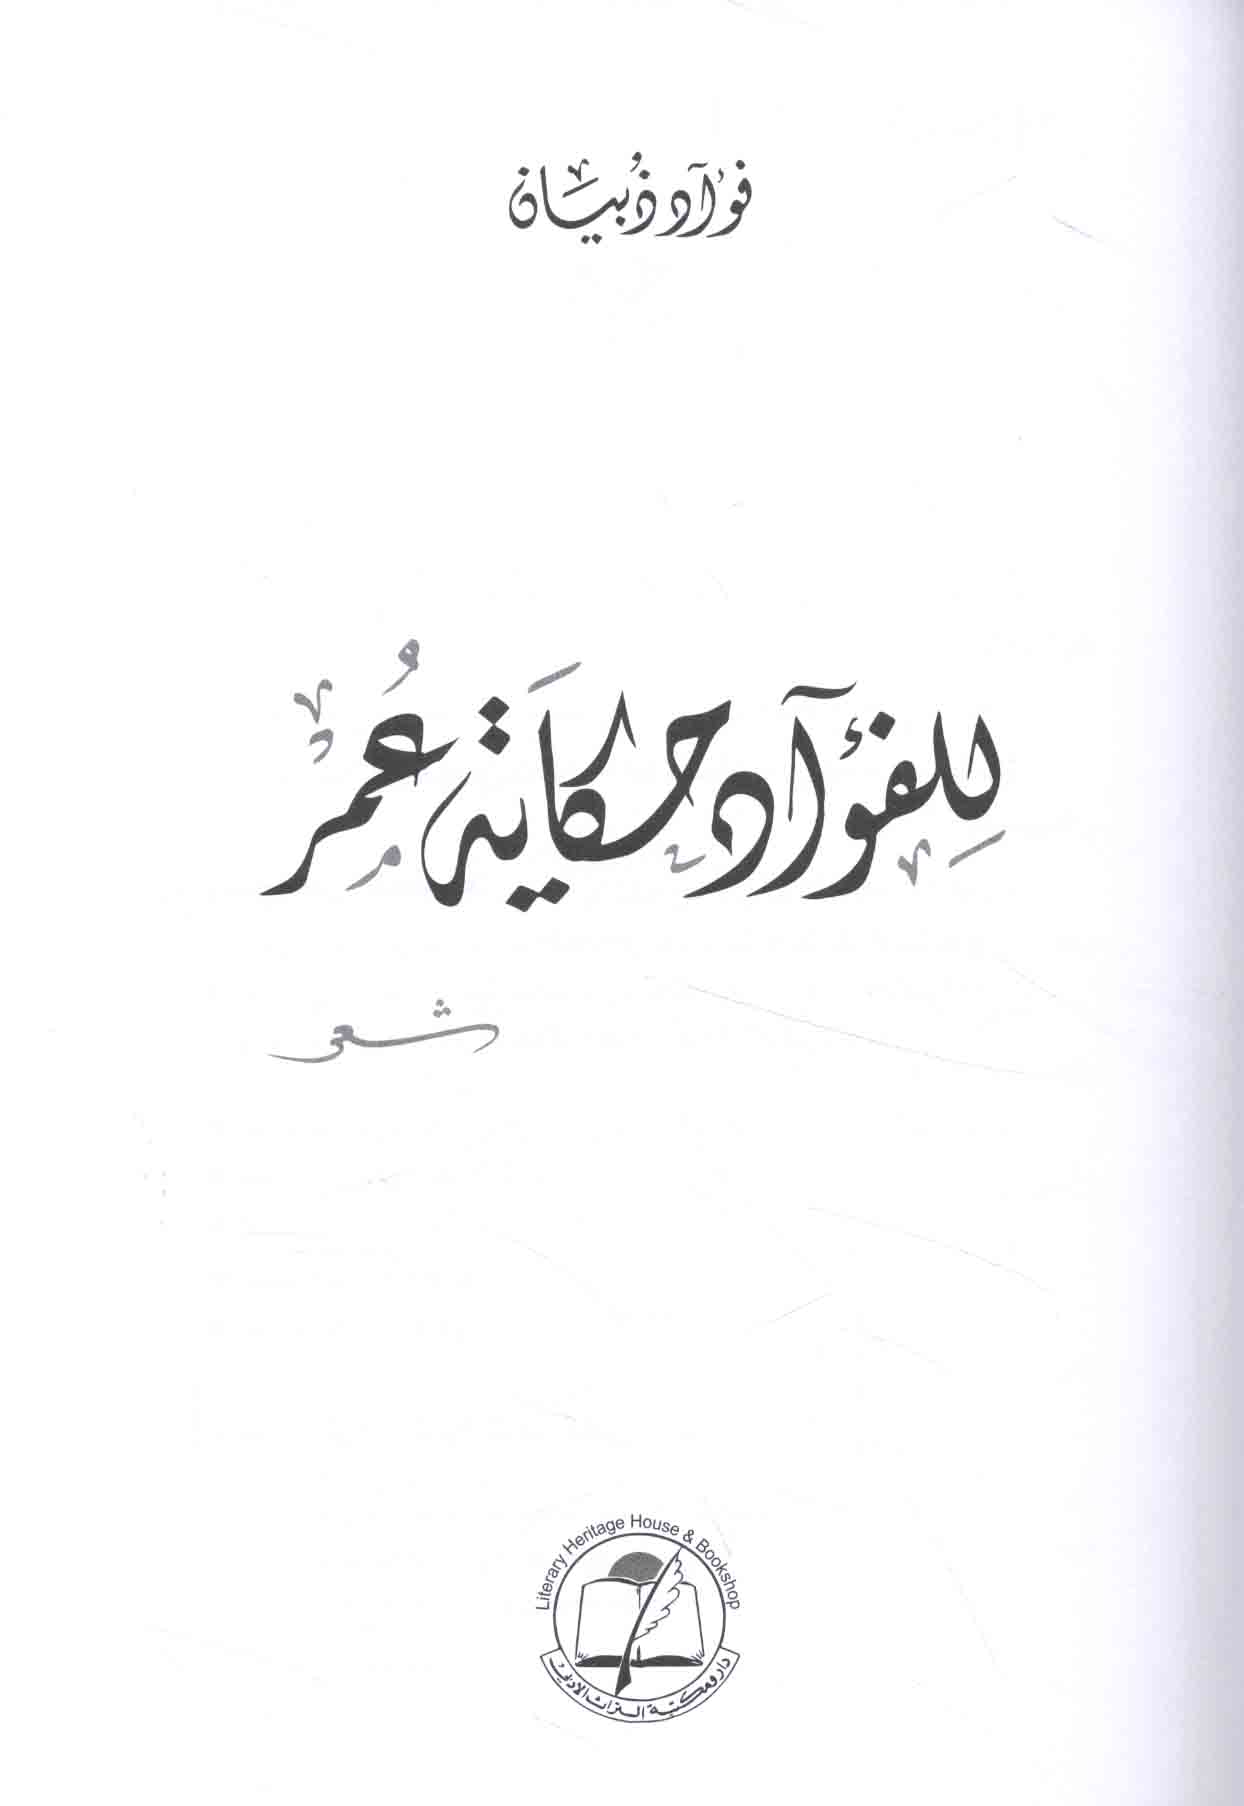 فؤآد ذُبيان
للفؤآد حكاية عُمر
شعر
Literary Heritage House & Bookshop
دار ومكتبة التراث الأدبي